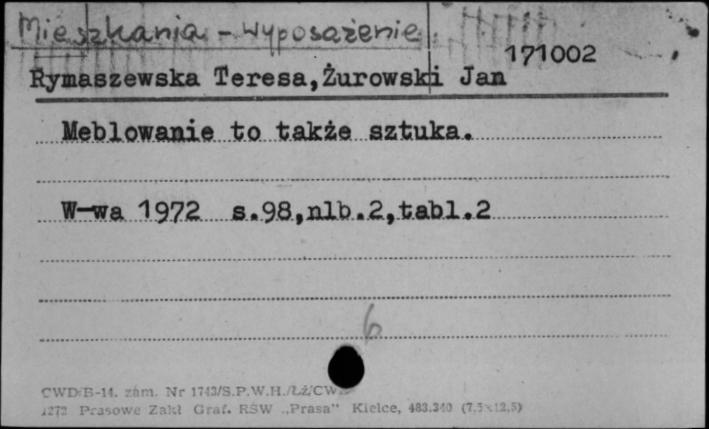 Mieszkania - wyposażenie
171002
Rymaszewska Teresa,Żurowski Jan
Meblowanie to także sztuka.
W-wa 1972 s.98,nlb.2,tabl.2
6
CWD/B-14. zam. Nr 1743/S.P.W.H./ŁŻ/CW
1272 Prasowe Zakł Graf. RSW „Prasa" Kielce, 483.340 (7,5×12,5)